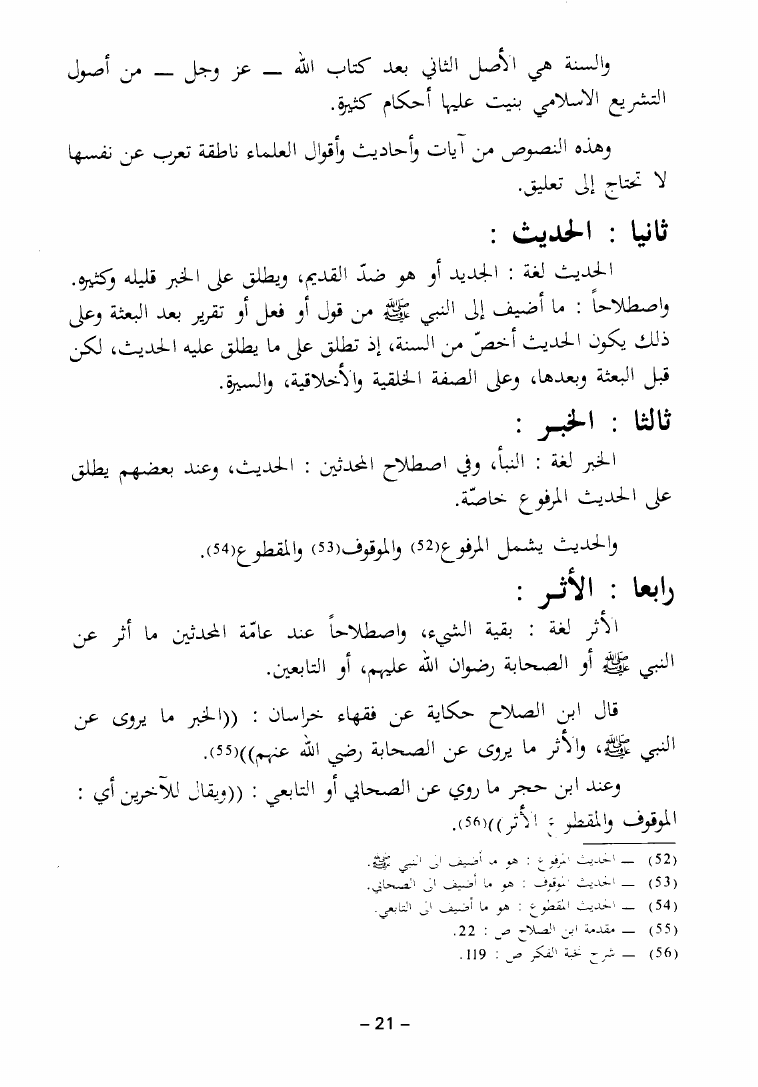 والسنة هي الأصل الثاني بعد كتاب الله — عز وجل — من أصول
التشريع الاسلامي بنيت عليها أحكام كثيرة.
وهذه النصوص من آيات وأحاديث وأقوال العلماء ناطقة تعرب عن نفسها
لا تحتاج إلى تعليق.
ثانيا : الحديث :
الحديث لغة : الجديد أو هو ضدّ القديم، ويطلق على الخبر قليله وكثيره.
واصطلاحاً : ما أضيف إلى النبي ﷺ من قول أو فعل أو تقرير بعد البعثة وعلى
ذلك يكون الحديث أخصّ من السنة، إذ تطلق على ما يطلق عليه الحديث، لكن
قبل البعثة وبعدها، وعلى الصفة الخلقية والأخلاقية، والسيرة.
ثالثا : الخبـر :
الخبر لغة : النبأ، وفي اصطلاح المحدثين : الحديث، وعند بعضهم يطلق
على الحديث المرفوع خاصّة.
والحديث يشمل المرفوع(52) والموقوف(53) والمقطوع(54).
رابعا : الأثـر :
الأثر لغة : بقية الشيء، واصطلاحاً عند عامّة المحدثين ما أثر عن
النبي ﷺ أو الصحابة رضوان الله عليهم، أو التابعين.
قال ابن الصلاح حكاية عن فقهاء خراسان : ((الخبر ما يروى عن
النبي ﷺ، والأثر ما يروى عن الصحابة رضي الله عنهم))(55).
وعند ابن حجر ما روي عن الصحابي أو التابعي : ((ويقال للآخرين أي :
الموقوف والمقطوع : الأثر))(56).
(52) — الحديث المرفوع : هو ما أضيف الى النبي ﷺ.
(53) — الحديث الموقوف : هو ما أضيف الى الصحابي.
(54) — الحديث المقطوع : هو ما أضيف الى التابعي.
(55) — مقدمة ابن الصلاح ص : 22.
(56) — شرح نخبة الفكر ص : 119.
– 21 –